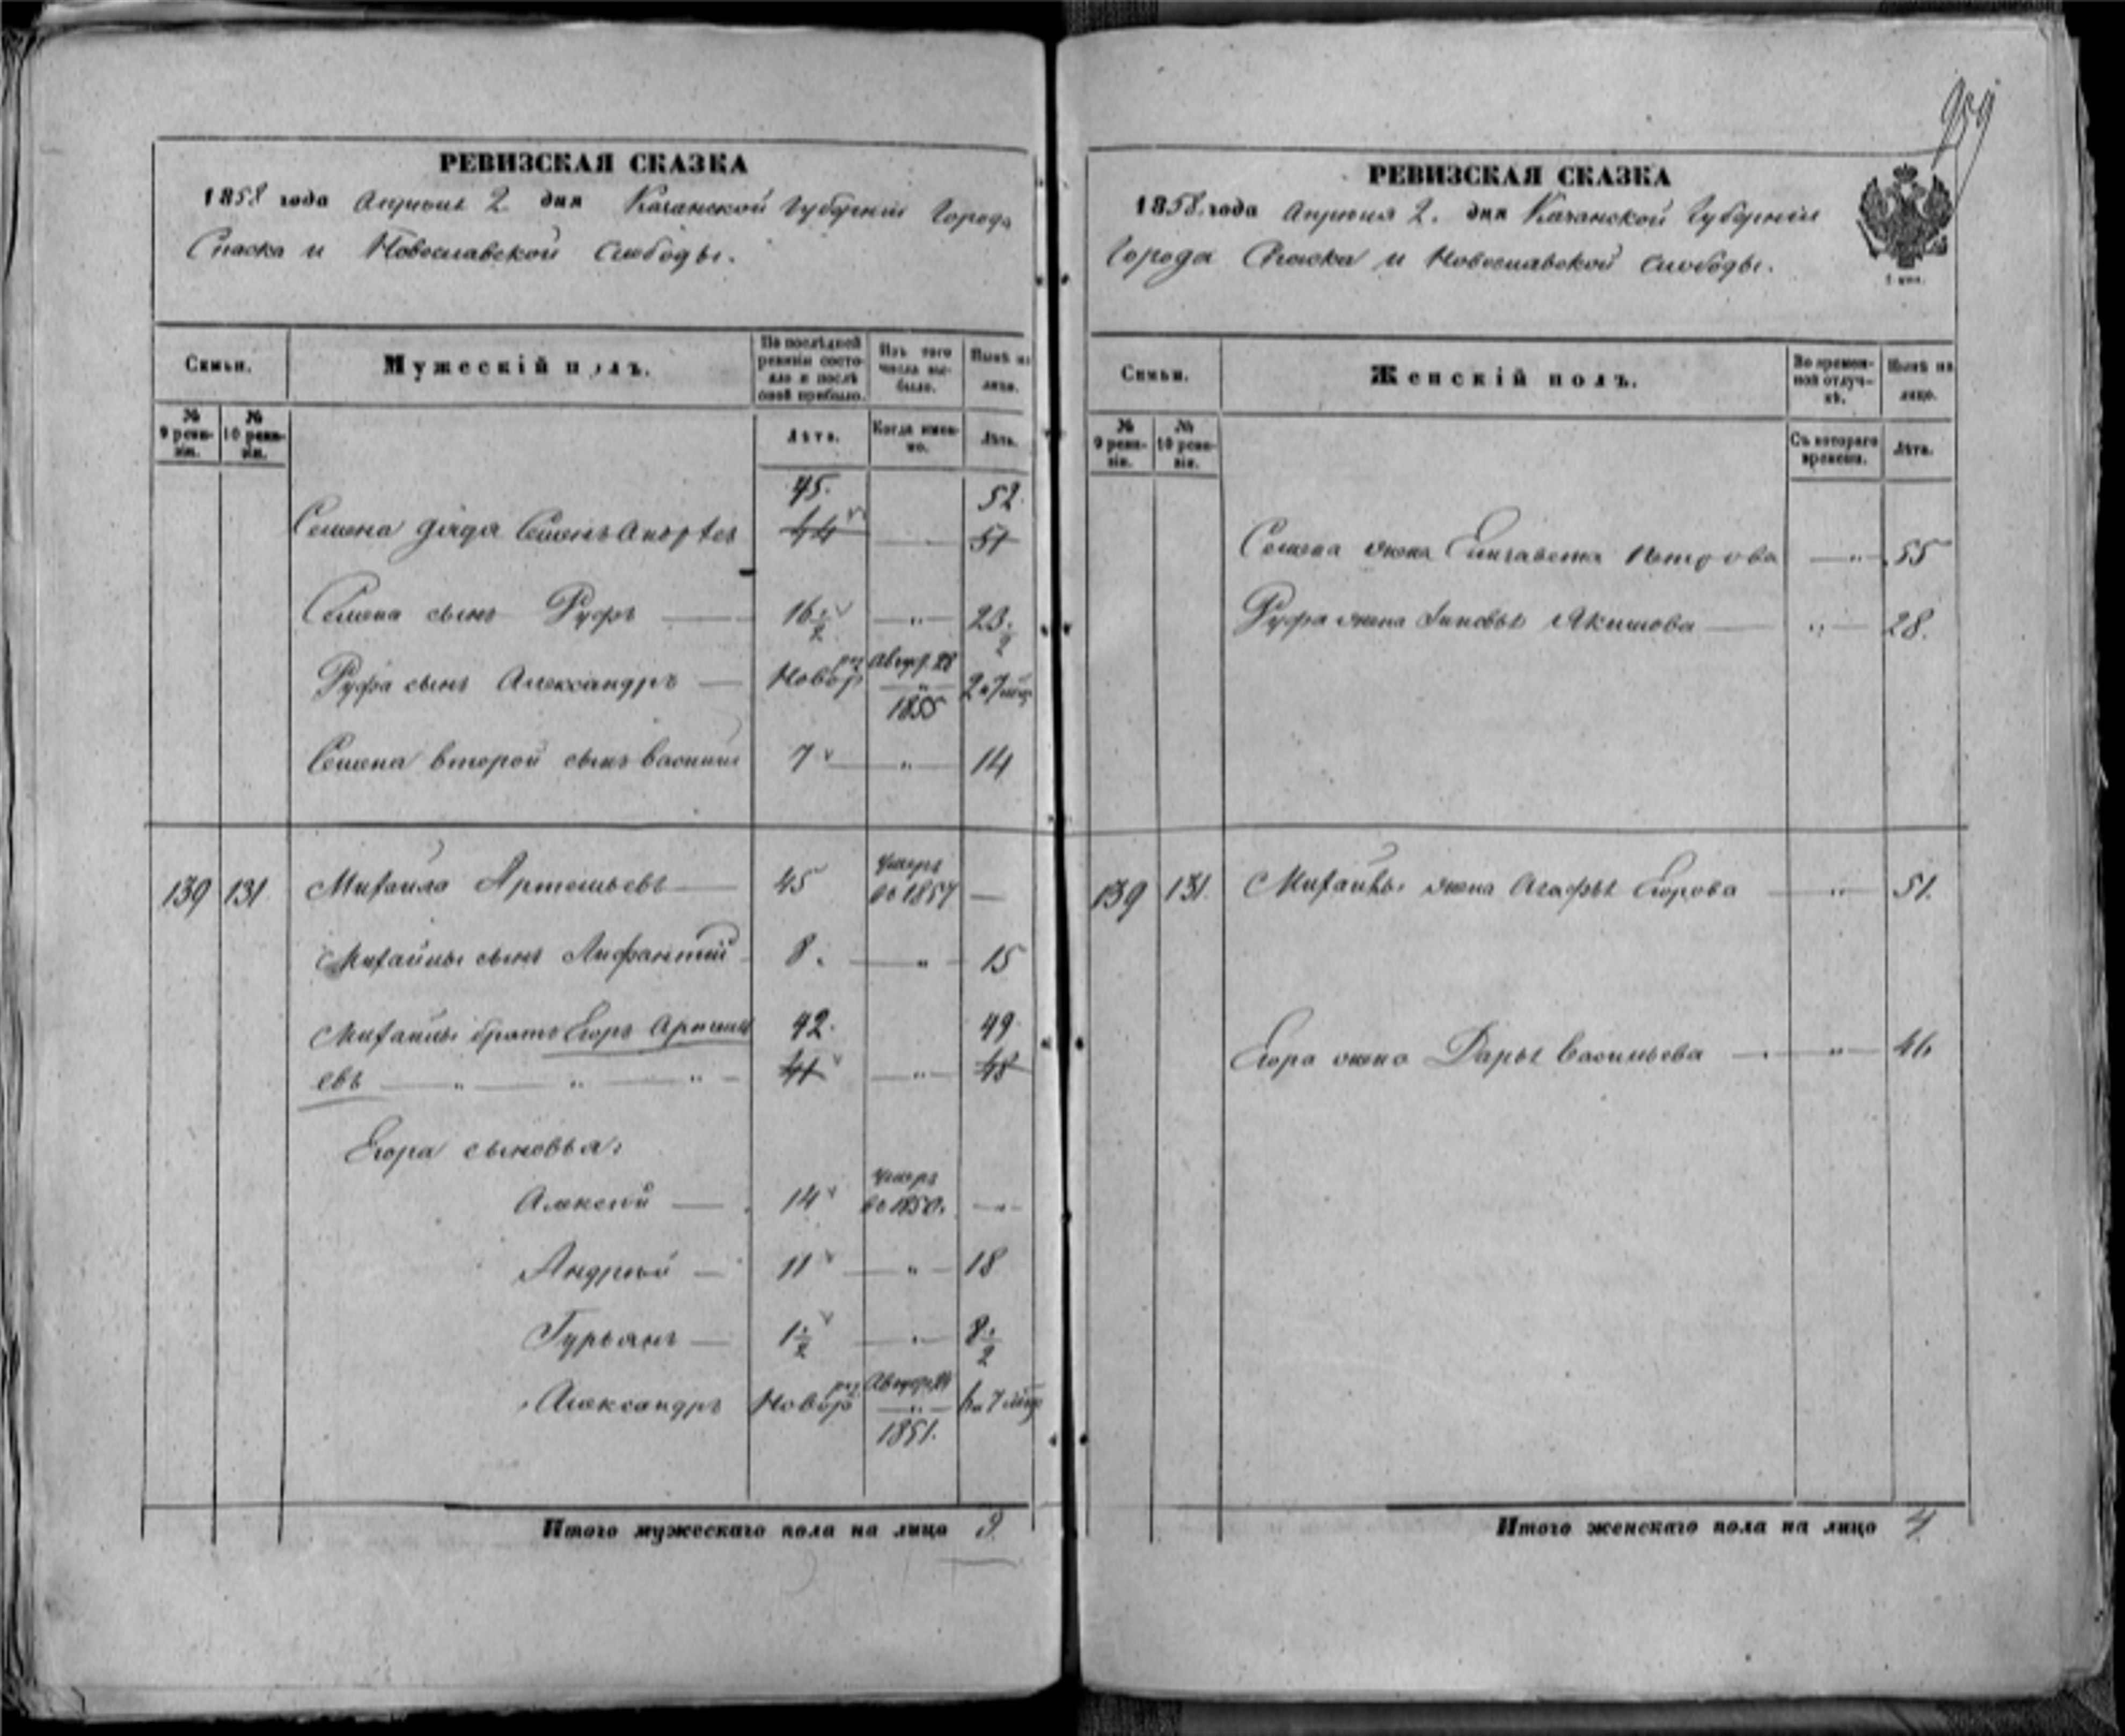 959
РЕВИЗСКАЯ СКАЗКА
1858 года Апреля 2 дня Казанской Губернии Города
Спаска и Новославской Слободы.
Семьи.
Мужескій полъ.
По послѣдней ревизіи состояло и послѣ оной прибыло.
Изъ того числа выбыло.
Нынѣ на лицо.
№ 9 ревизіи.
№ 10 ревизіи.
Лѣта.
Когда именно.
Лѣта.
45. 52.
Семена дядя Семенъ 44 — 51
Семена сынъ Руфъ — 16 1/2 — „ — 23 1/2
Руфа сынъ Александръ — Новор Авгус. 28 1855 2 и 7 мѣц
Семена второй сынъ Василий 7 — „ — 14
139 131 Михаила Артемьевъ — 45 Умеръ въ 1857 —
Михайлы сынъ 8. — „ — 15
Михайлы братъ Егоръ Артемь 42. 49
евъ — „ — „ — „ — 41 — „ — 48
Егора сыновья:
Алексей — 14 Умеръ въ 1850. — „ —
Андрей — 11 — „ — 18
Гурьянъ — 1 1/2 — „ — 8 1/2
Александръ Новор 1851. 6 и 7 мѣц
Итого мужескаго пола на лицо 9.
РЕВИЗСКАЯ СКАЗКА
1858. года Апреля 2. дня Казанской Губернии
Города Спаска и Новославской Слободы.
Семьи.
Женскій полъ.
Во временной отлучкѣ.
Нынѣ на лицо.
№ 9 ревизіи.
№ 10 ревизіи.
Съ котораго времени.
Лѣта.
Семена жена Елизавета Петрова — „ — 55
Руфа жена Зиновья Якимова — „ — 28.
139 131. Михайлы жена Агафья Егорова — „ — 51.
Егора жена Дарья Васильева — „ — 46
Итого женскаго пола на лицо 4.